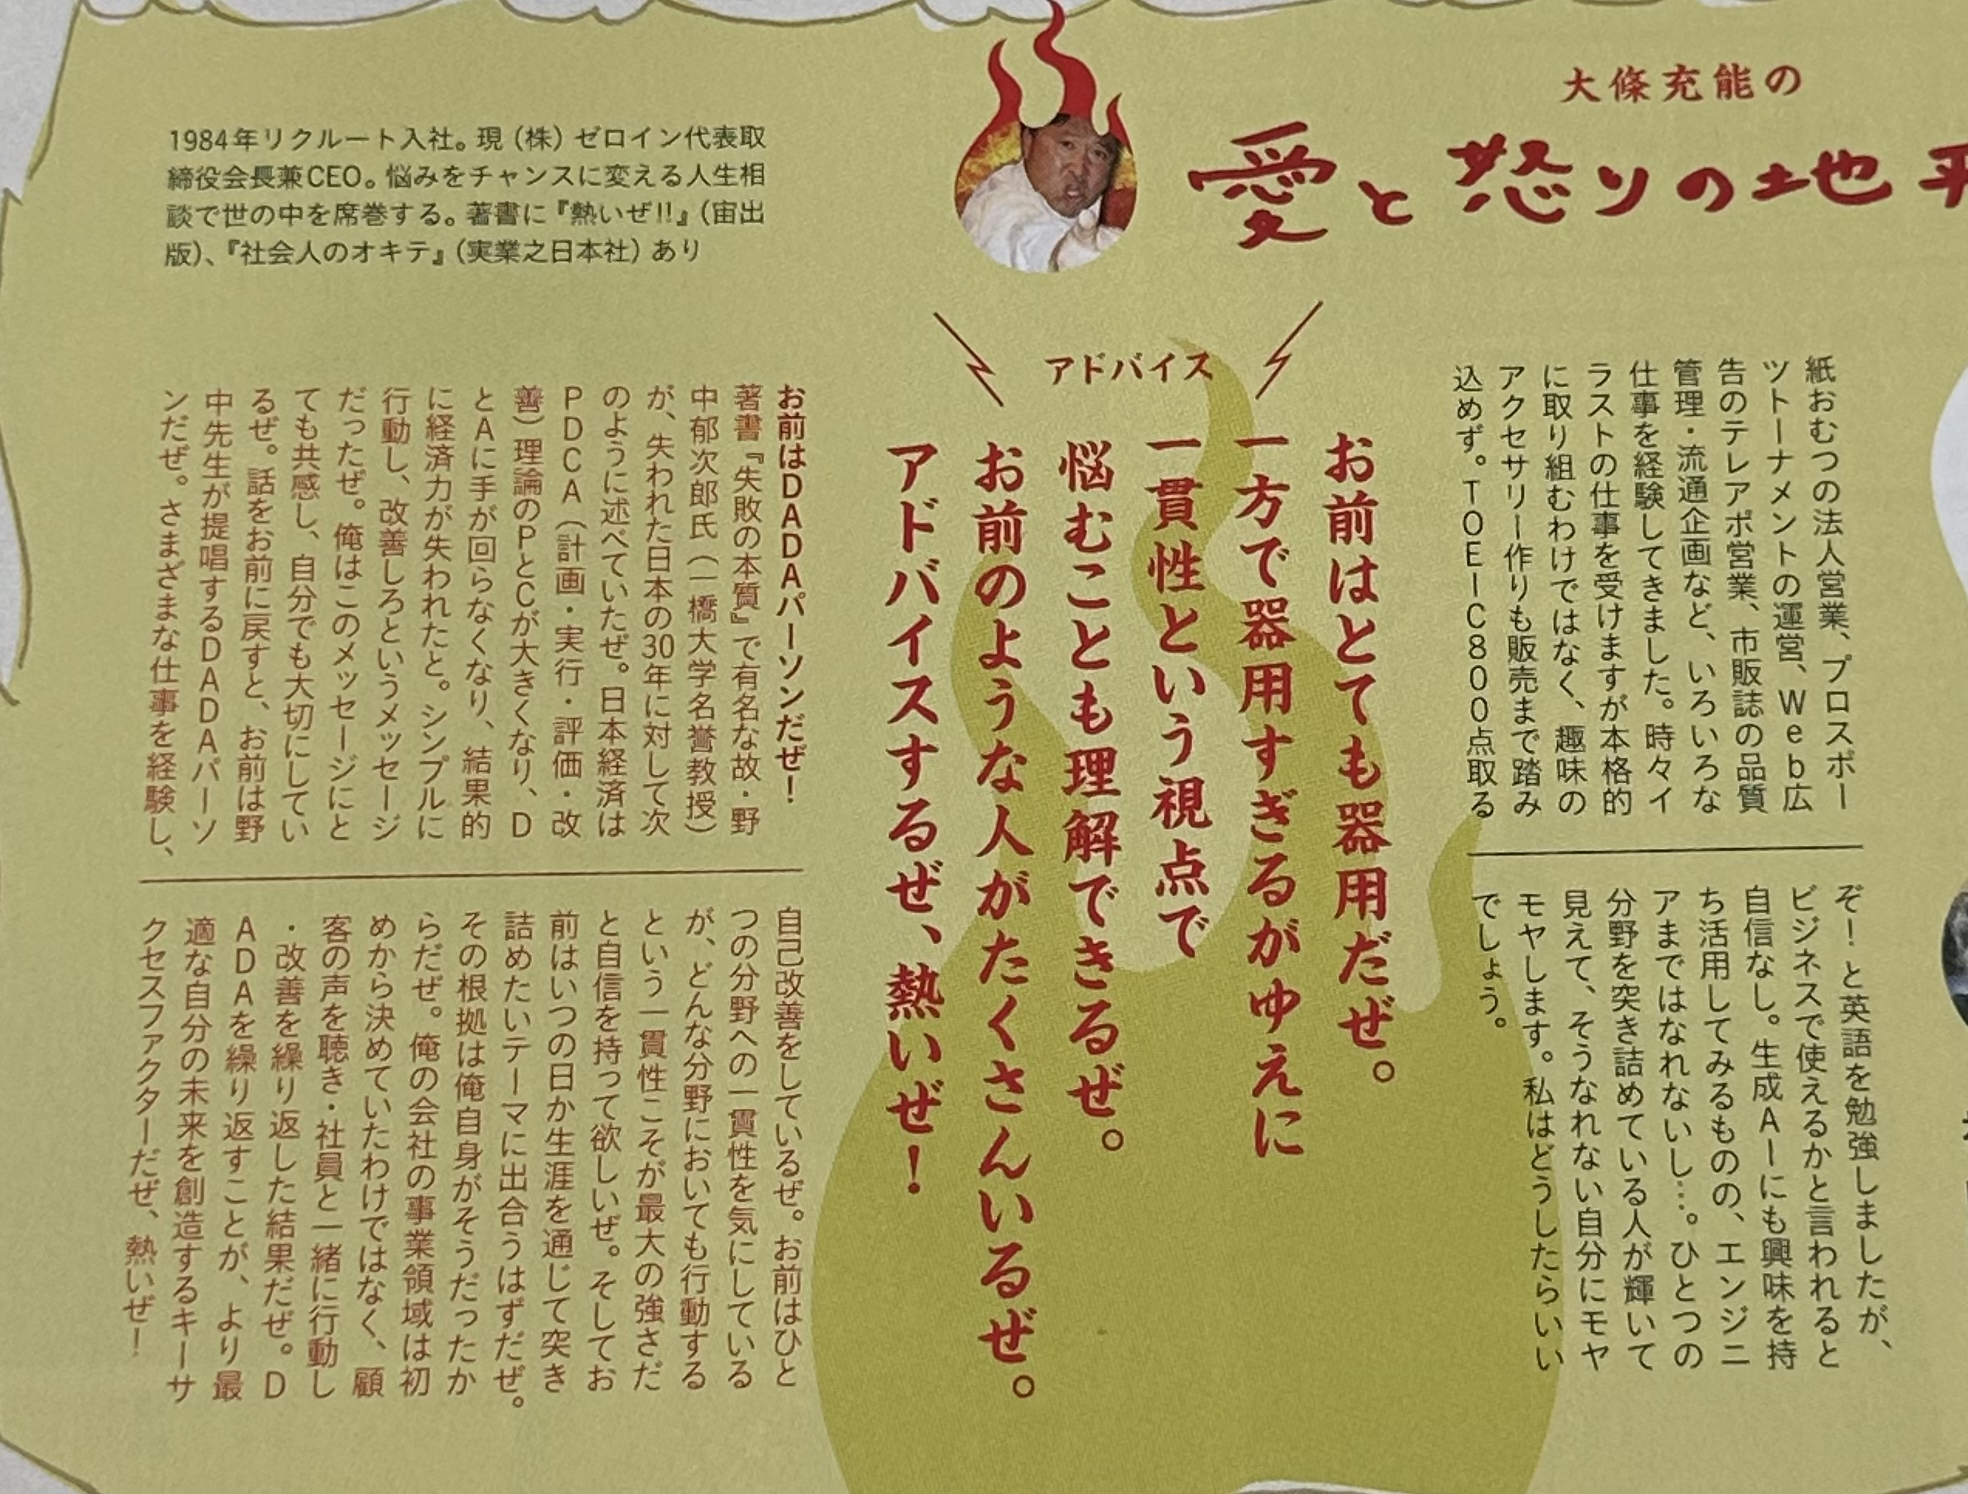 大條充能の
愛と怒りの地平
1984年リクルート入社。現（株）ゼロイン代表取
締役会長兼CEO。悩みをチャンスに変える人生相
談で世の中を席巻する。著書に『熱いぜ!!』（宙出
版）、『社会人のオキテ』（実業之日本社）あり
紙おむつの法人営業、プロスポー
ツトーナメントの運営、Web広
告のテレアポ営業、市販誌の品質
管理・流通企画など、いろいろな
仕事を経験してきました。時々イ
ラストの仕事を受けますが本格的
に取り組むわけではなく、趣味の
アクセサリー作りも販売まで踏み
込めず。TOEIC800点取る
ぞ！と英語を勉強しましたが、
ビジネスで使えるかと言われると
自信なし。生成AIにも興味を持
ち活用してみるものの、エンジニ
アまではなれないし…。ひとつの
分野を突き詰めている人が輝いて
見えて、そうなれない自分にモヤ
モヤします。私はどうしたらいい
でしょう。
アドバイス
お前はとても器用だぜ。
一方で器用すぎるがゆえに
一貫性という視点で
悩むことも理解できるぜ。
お前のような人がたくさんいるぜ。
アドバイスするぜ、熱いぜ！
お前はDADAパーソンだぜ！
著書『失敗の本質』で有名な故・野
中郁次郎氏（一橋大学名誉教授）
が、失われた日本の30年に対して次
のように述べていたぜ。日本経済は
PDCA（計画・実行・評価・改
善）理論のPとCが大きくなり、D
とAに手が回らなくなり、結果的
に経済力が失われたと。シンプルに
行動し、改善しろというメッセージ
だったぜ。俺はこのメッセージにと
ても共感し、自分でも大切にしてい
るぜ。話をお前に戻すと、お前は野
中先生が提唱するDADAパーソ
ンだぜ。さまざまな仕事を経験し、
自己改善をしているぜ。お前はひと
つの分野への一貫性を気にしている
が、どんな分野においても行動する
という一貫性こそが最大の強さだ
と自信を持って欲しいぜ。そしてお
前はいつの日か生涯を通じて突き
詰めたいテーマに出合うはずだぜ。
その根拠は俺自身がそうだったか
らだぜ。俺の会社の事業領域は初
めから決めていたわけではなく、顧
客の声を聴き・社員と一緒に行動し
・改善を繰り返した結果だぜ。D
ADAを繰り返すことが、より最
適な自分の未来を創造するキーサ
クセスファクターだぜ、熱いぜ！